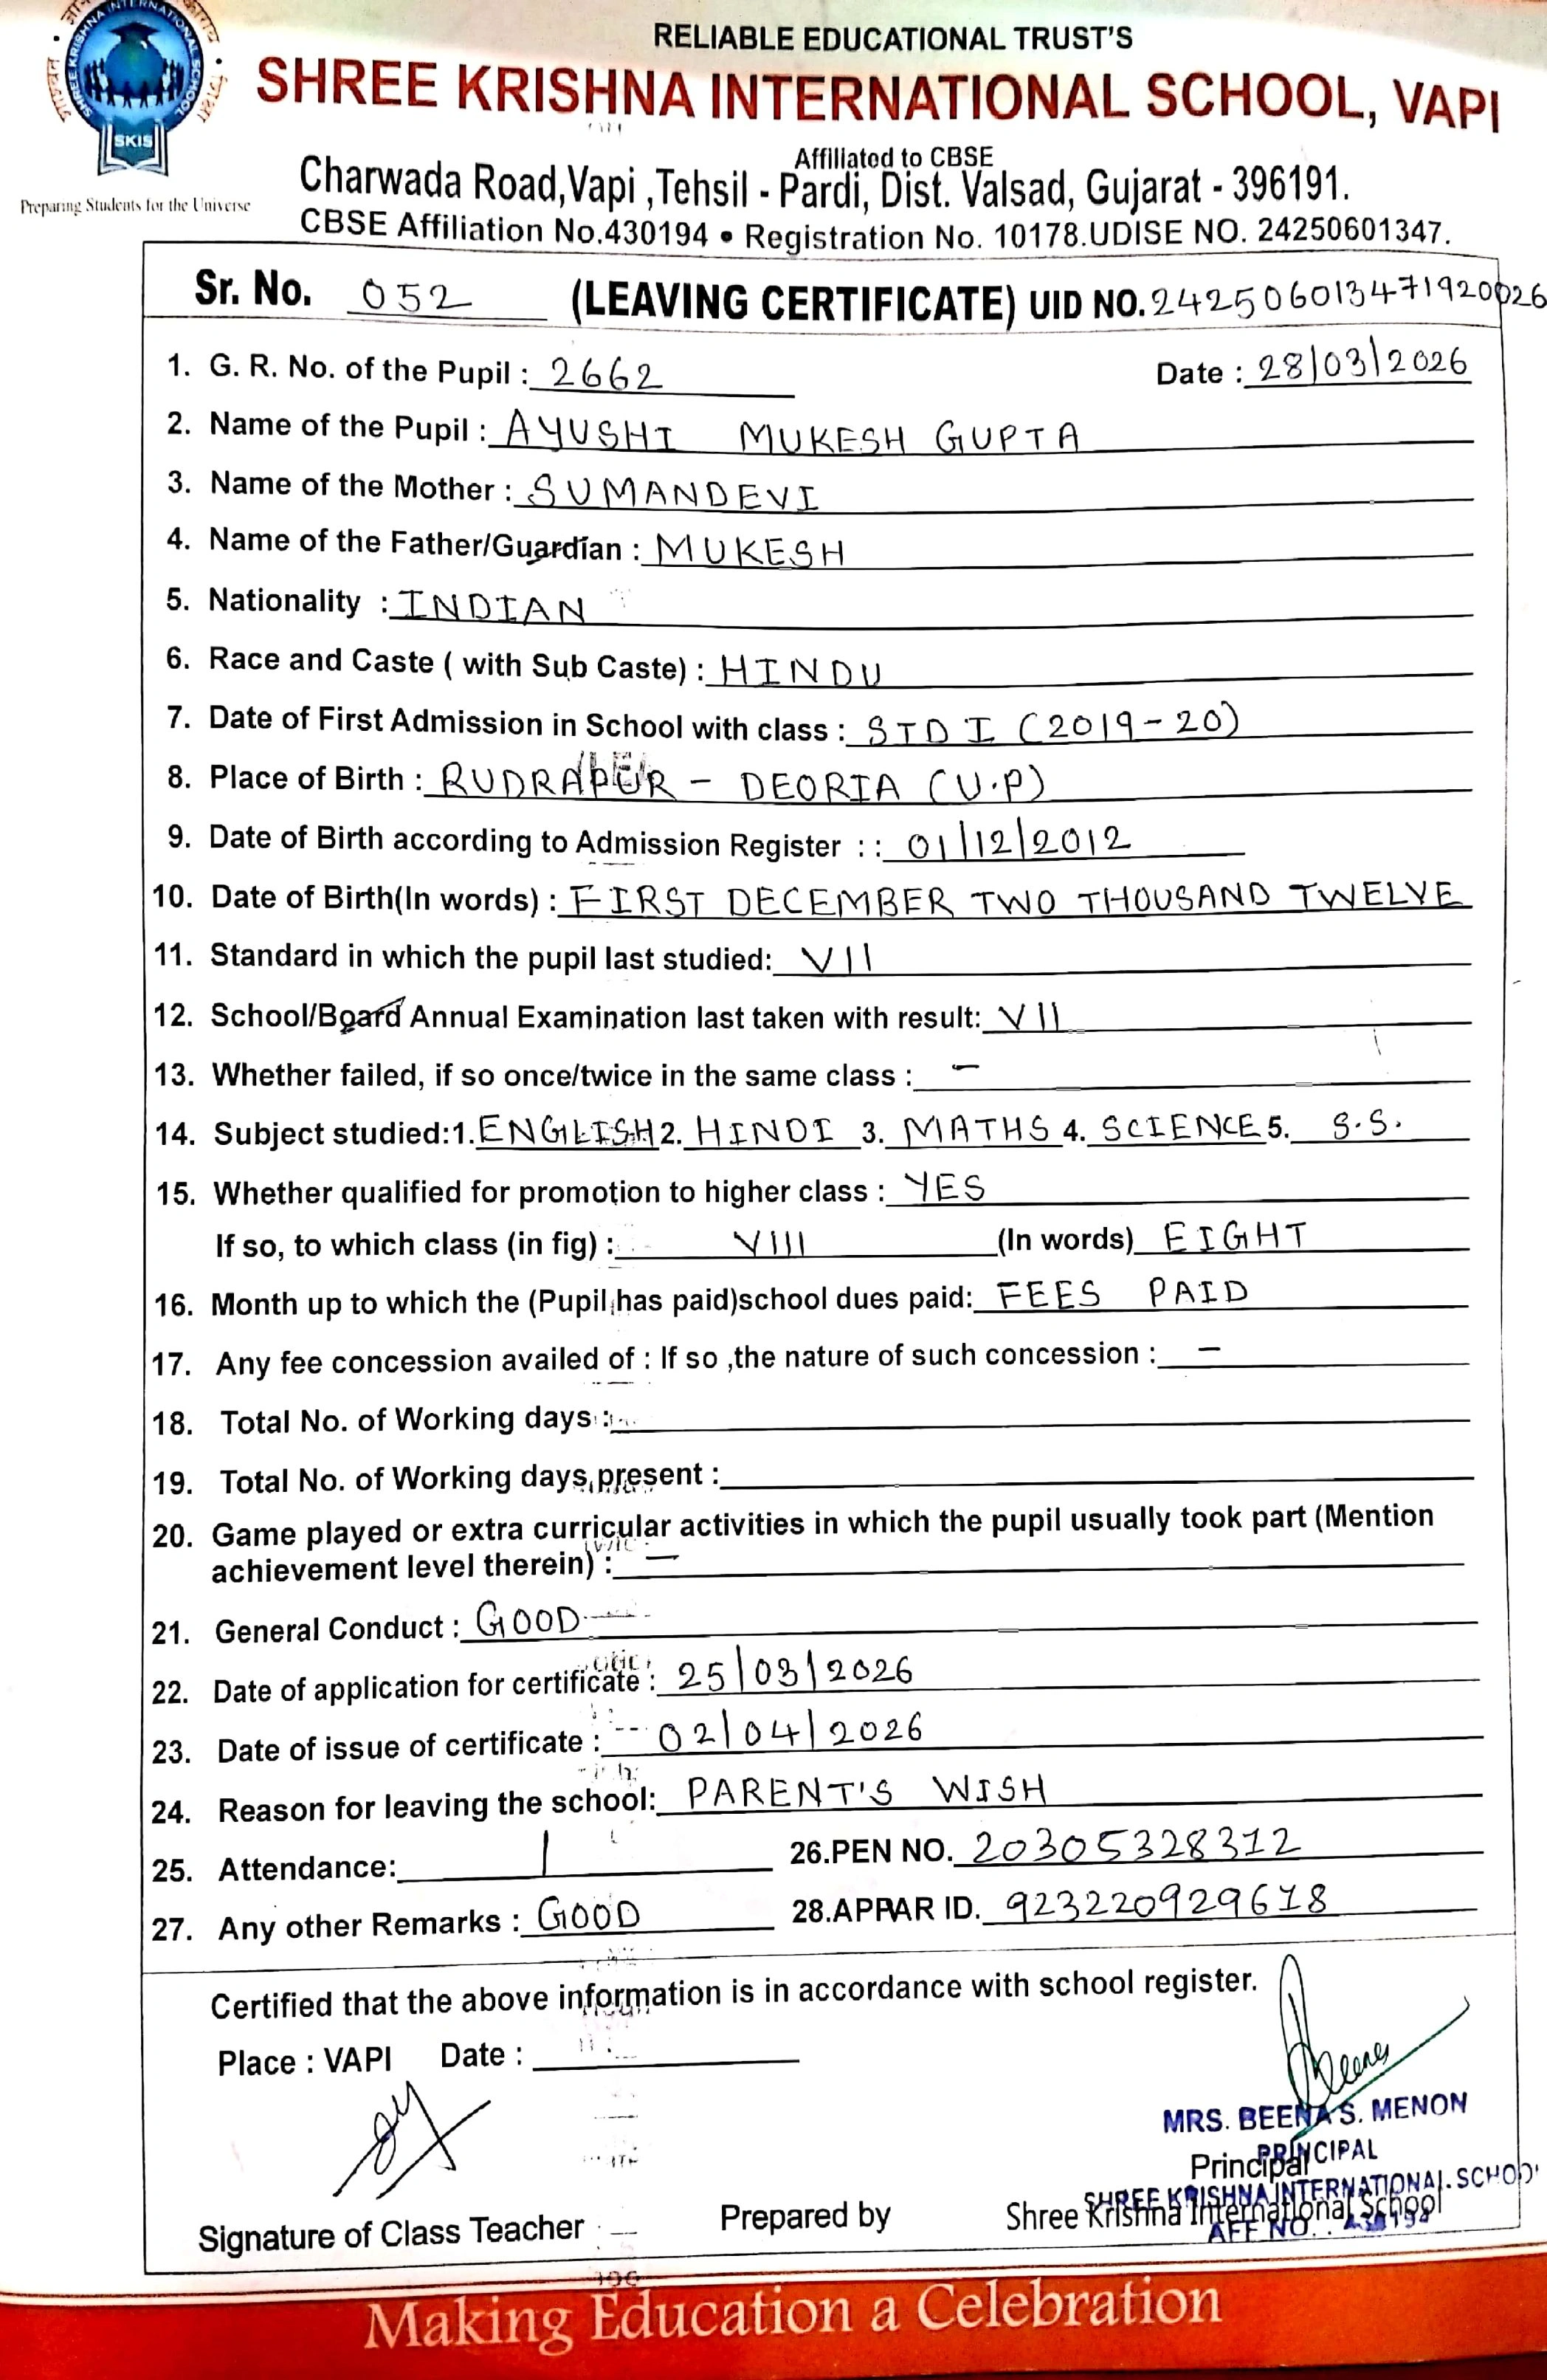 RELIABLE EDUCATIONAL TRUST'S
SHREE KRISHNA INTERNATIONAL SCHOOL, VAPI
SHREE KRISHNA INTERNATIONAL SCHOOL
SKIS
Preparing Students for the Universe
Affiliated to CBSE
Charwada Road,Vapi ,Tehsil - Pardi, Dist. Valsad, Gujarat - 396191.
CBSE Affiliation No.430194 • Registration No. 10178.UDISE NO. 24250601347.
Sr. No. 052 (LEAVING CERTIFICATE) UID NO. 242506013471920026
1. G. R. No. of the Pupil : 2662 Date : 28/03/2026
2. Name of the Pupil : AYUSHI MUKESH GUPTA
3. Name of the Mother : SUMANDEVI
4. Name of the Father/Guardian : MUKESH
5. Nationality : INDIAN
6. Race and Caste ( with Sub Caste) : HINDU
7. Date of First Admission in School with class : STD I (2019-20)
8. Place of Birth : RUDRAPUR - DEORIA (U.P)
9. Date of Birth according to Admission Register : : 01/12/2012
10. Date of Birth(In words) : FIRST DECEMBER TWO THOUSAND TWELVE
11. Standard in which the pupil last studied: VII
12. School/Board Annual Examination last taken with result: VII
13. Whether failed, if so once/twice in the same class : -
14. Subject studied:1. ENGLISH 2. HINDI 3. MATHS 4. SCIENCE 5. S.S.
15. Whether qualified for promotion to higher class : YES
If so, to which class (in fig) : VIII (In words) EIGHT
16. Month up to which the (Pupil has paid)school dues paid: FEES PAID
17. Any fee concession availed of : If so ,the nature of such concession : -
18. Total No. of Working days :
19. Total No. of Working days present :
20. Game played or extra curricular activities in which the pupil usually took part (Mention
achievement level therein) : -
21. General Conduct : GOOD
22. Date of application for certificate : 25/03/2026
23. Date of issue of certificate : 02/04/2026
24. Reason for leaving the school: PARENT'S WISH
25. Attendance: | 26.PEN NO. 20305328312
27. Any other Remarks : GOOD 28.APPAR ID. 923220929618
Certified that the above information is in accordance with school register.
Place : VAPI Date :
MRS. BEENA S. MENON
PRINCIPAL
Principal
SHREE KRISHNA INTERNATIONAL SCHOOL
Signature of Class Teacher Prepared by Shree Krishna International School
AFF NO. : 430194
Making Education a Celebration